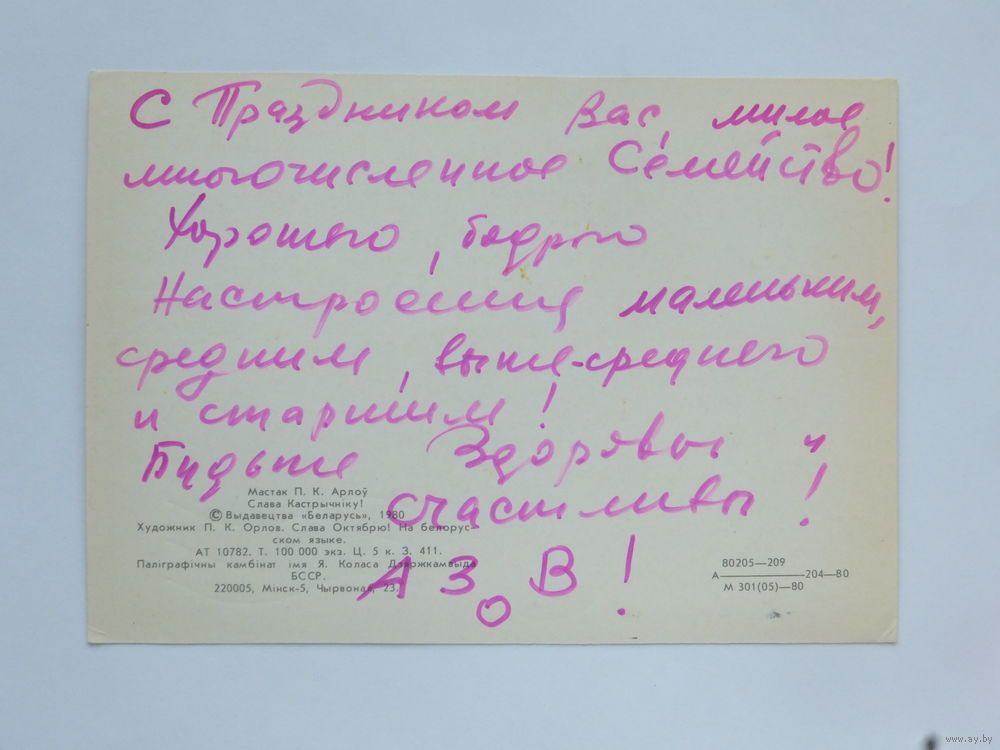 С Праздником Вас, милое
многочисленное Семейство!
Хорошего, бодрого
Настроения маленьким,
средним, выше-среднего
и старшим!
Будьте Здоровы и
счастливы!
Мастак П. К. Арлоў
Слава Кастрычніку!
© Выдавецтва «Беларусь», 1980
Художник П. К. Орлов. Слава Октябрю! На белорус-
ском языке.
АТ 10782. Т. 100 000 экз. Ц. 5 к. З. 411.
Паліграфічны камбінат імя Я. Коласа Дзяржкамвыда
БССР.
220005, Мінск-5, Чырвоная, 23.
А З О В!
80205—209
А———204—80
М 301(05)—80
www.ay.by